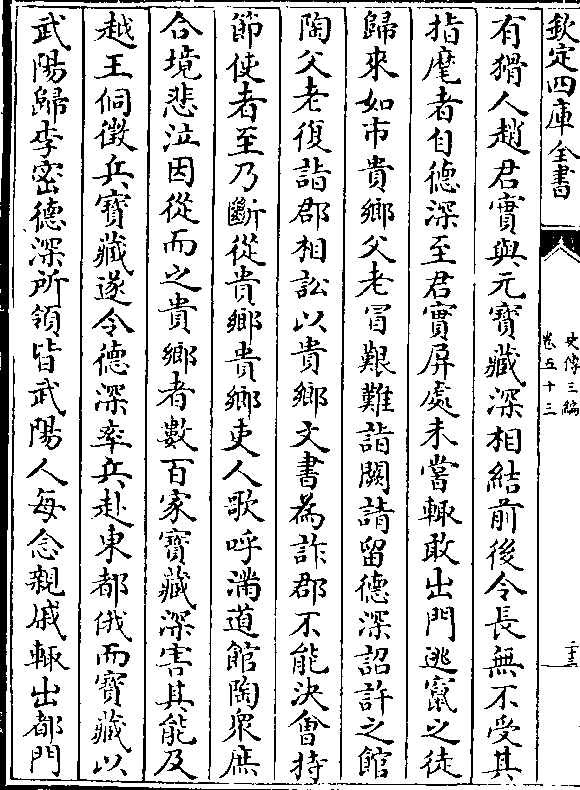 欽定四庫全書
史傳三編
卷五十三
二十三
有猾人趙君實與元寶藏深相結前後令長無不受其
指麾者自德深至君實屏處未嘗輙敢出門逃竄之徒
歸來如市貴鄉父老冒艱難詣闕請留德深詔許之館
陶父老復詣郡相訟以貴鄉文書為詐郡不能決會持
節使者至乃斷從貴鄉貴鄉吏人歌呼滿道館陶眾庶
合境悲泣因從而之貴鄉者數百家寶藏深害其能及
越王侗徵兵寶藏遂令德深率兵赴東都俄而寶藏以
武陽歸李密德深所領皆武陽人每念親戚輙出都門